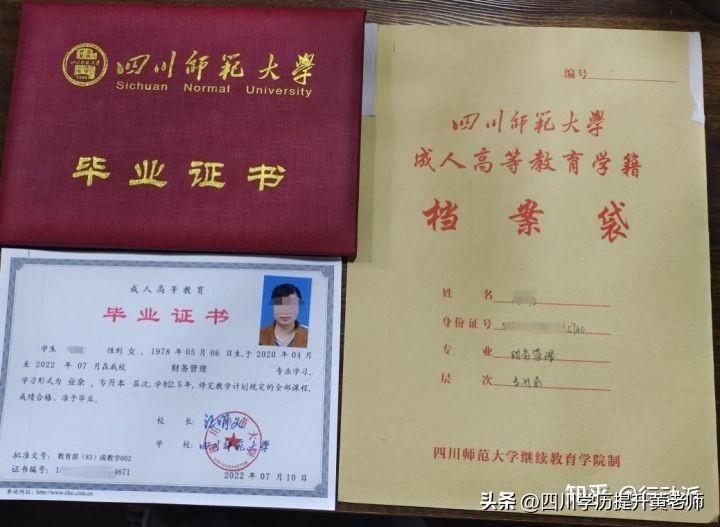 四川师范大学
Sichuan Normal University
毕业证书
成人高等教育
毕业证书
学生 性别 女，1978 年 05 月 06 日生，于 2020 年 04 月
至 2022 年 07 月在我校 财务管理 专业学习，
学习形式为 业余，专升本 层次，学制2.5年，修完教学计划规定的全部课程，
成绩合格，准予毕业。
校 长：
学 校：四川师范大学
批准文号：教育部（83）成教字002
证书编号：1 4671
2022 年 07 月 10 日
查询网址：http://www.chsi.com.cn
编号
四川师范大学
成人高等教育学籍
档案袋
姓 名
身份证号
专 业 财务管理
层 次 专升本
四川师范大学继续教育学院制
知乎 @行动派
头条 @四川学历提升龚老师